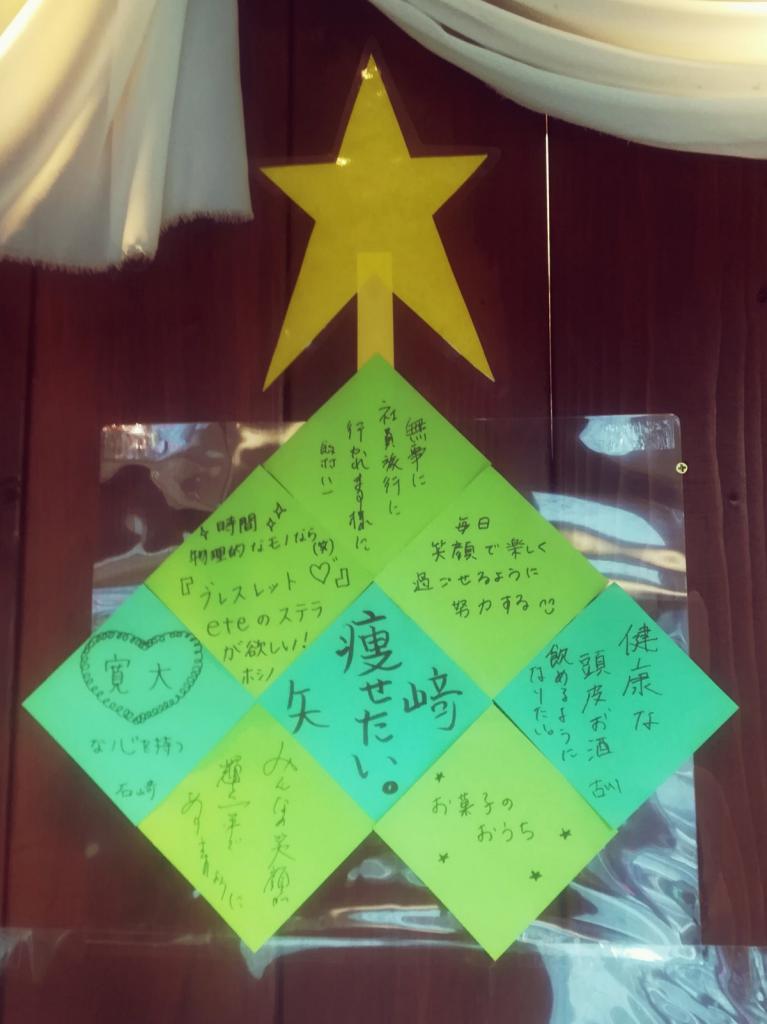 無事に
社員旅行に
行かれます様に
時間
物理的なモノなら(笑)
『ブレスレット♡』
eteのステラ
が欲しい!
ホシノ
毎日
笑顔で楽しく
過ごせるように
努力する
寛大
な心を持つ
石崎
痩せたい。
矢﨑
健康な
頭皮お酒
飲めるように
なりたい。
古川
みんなの笑顔が
輝く一年で
あります様に
お菓子の
おうち